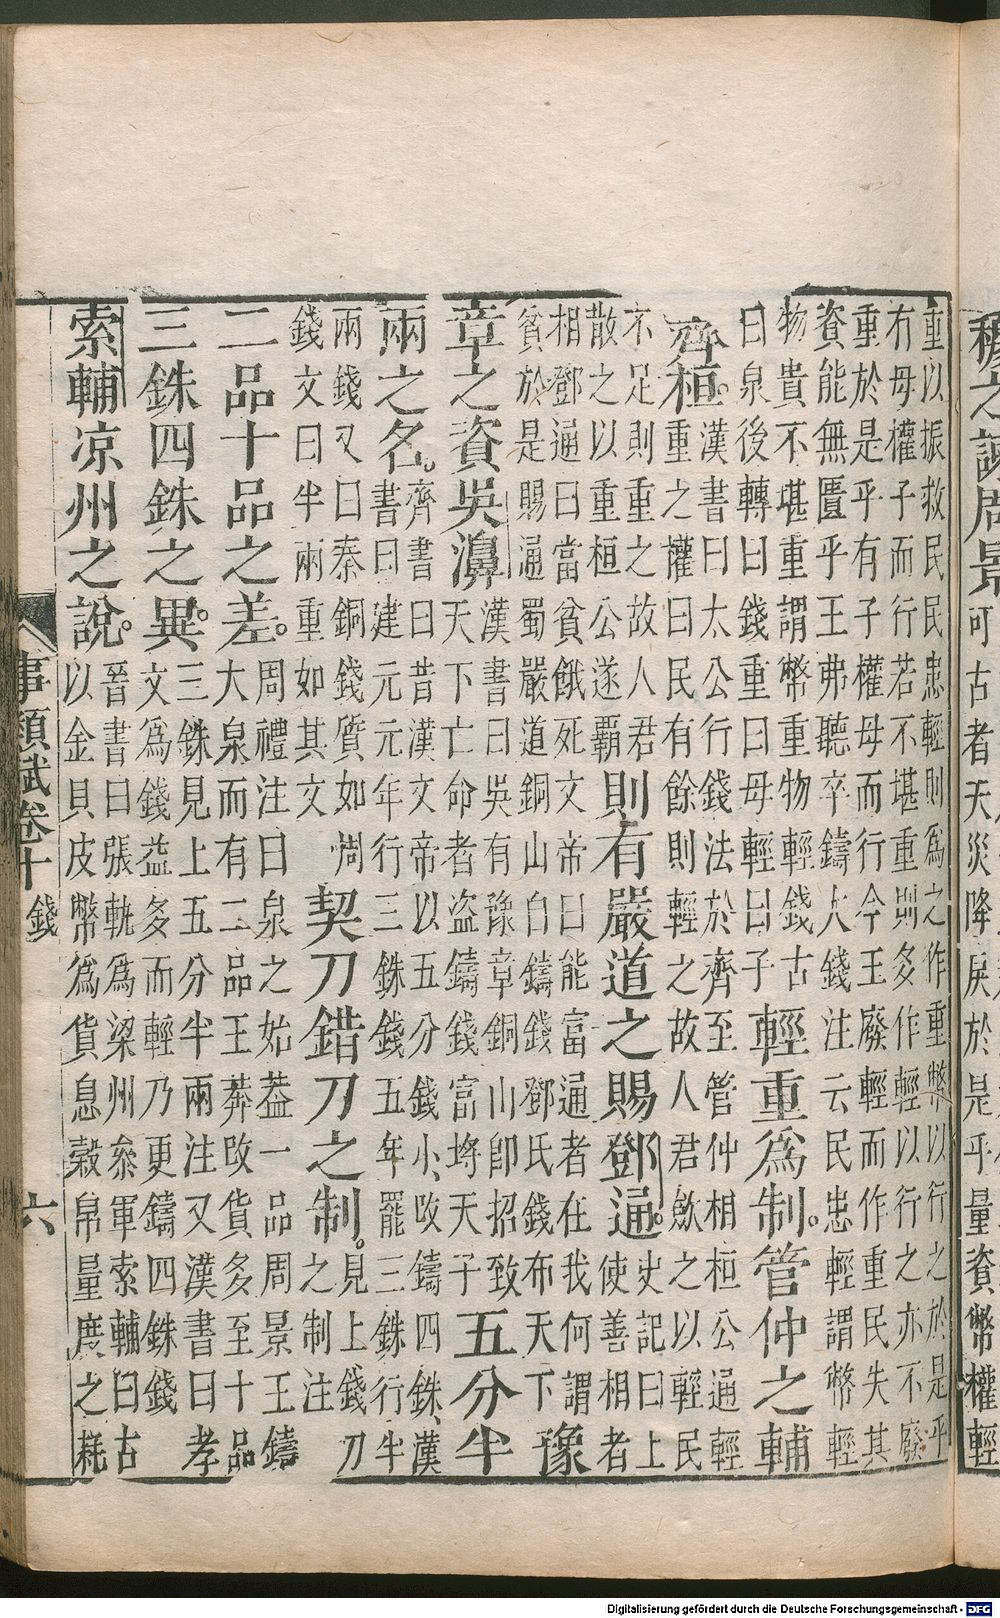 穆之諫周景可古者天災降戾於是乎量資幣權輕
重以振救民民患輕則爲之作重幣以行之於是乎
有母權子而行若不堪重則多作輕以行之亦不廢
重於是乎有子權母而行今王廢輕而作重民失其
資能無匱乎王弗聽卒鑄大錢注云民患輕謂幣輕
物貴不堪重謂幣重物輕錢古
曰泉後轉曰錢重曰母輕曰子
輕重爲制。管仲之輔
齊桓。
漢書曰太公行錢法於齊至管仲相桓公通輕
重之權曰民有餘則輕之故人君斂之以輕民
不足則重之故人君
散之以重桓公遂覇
則有嚴道之賜鄧通。
史記曰上
使善相者
相鄧通曰當貧餓死文帝曰能富通者在我何謂
貧於是賜通蜀嚴道銅山自鑄錢鄧氏錢布天下
豫
章之資吳濞
漢書曰吳有豫章銅山卽招致
天下亡命者盗鑄錢富埓天子
五分半
兩之名。
齊書曰昔漢文帝以五分錢小攺鑄四銖漢
書曰建元元年行三銖錢五年罷三銖行半
兩錢又曰秦銅錢質如周
錢文曰半兩重如其文
契刀錯刀之制。
見上錢刀
之制注
二品十品之差。
周禮注曰泉之始葢一品周景王鑄
大泉而有二品王莽攺貨多至十品
三銖四銖之異。
三銖見上五分半兩注又漢書曰孝
文爲錢益多而輕乃更鑄四銖錢
索輔凉州之說。
晉書曰張軌爲梁州叅軍索輔曰古
以金貝皮幣爲貨息穀帛量度之耗
事類賦卷十 錢 六
Digitalisierung gefördert durch die Deutsche Forschungsgemeinschaft - DFG